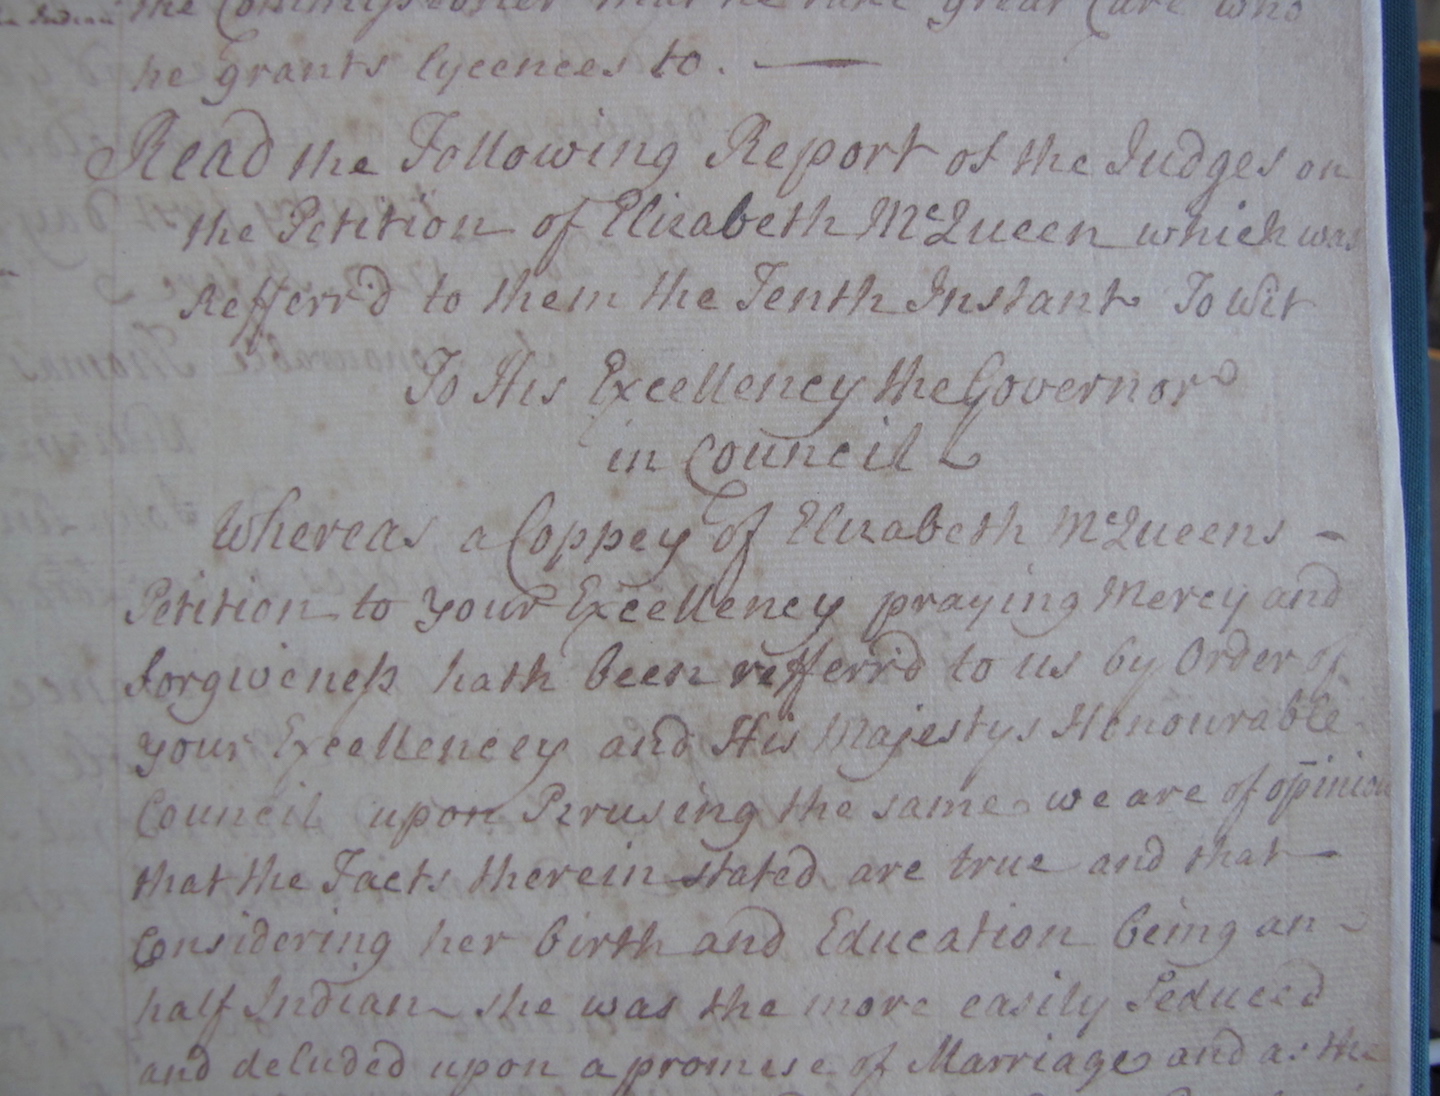 the Commissioner that he take great Care who
he grants lycences to.
Read the Following Report of the Judges on
the Petition of Elizabeth McQueen which was
Refferr'd to them the Tenth Instant To Wit
To His Excellency the Governor
in Council
Whereas a Coppey of Elizabeth McQueens -
Petition to your Excellency praying Mercy and
forgiveness hath been refferr'd to us by Order of
your Excellencey and His Majestys Honourable
Council upon Perusing the same we are of opinion
that the Facts therein stated are true and that
Considering her birth and Education being an
half Indian she was the more easily Seduced
and deluded upon a promise of Marriage and as the